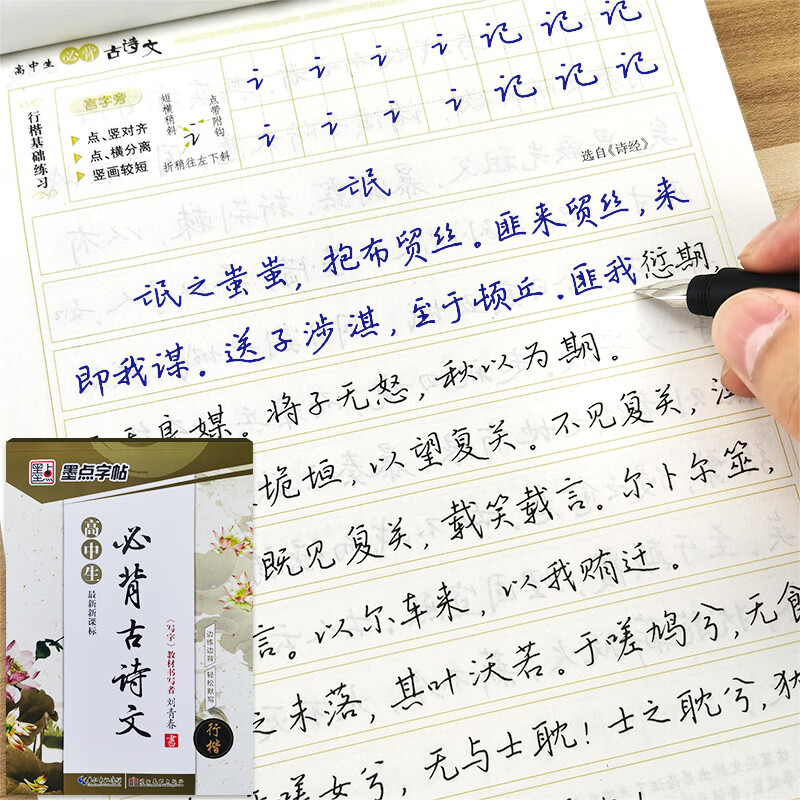 高中生必背古诗文
行楷基础练习
言字旁
点、竖对齐
点、横分离
竖画较短
短横稍斜
点带附钩
折稍往左下斜
讠讠讠讠记记记
讠讠讠讠记记记
选自《诗经》
氓
氓之蚩蚩，抱布贸丝。匪来贸丝，来
即我谋。送子涉淇，至于顿丘。匪我愆期，
良媒。将子无怒，秋以为期。
垝垣，以望复关。不见复关，泣
既见复关，载笑载言。尔卜尔筮，
言。以尔车来，以我贿迁。
之未落，其叶沃若。于嗟鸠兮，无食
嗟女兮，无与士耽！士之耽兮，犹
墨点
墨点字帖
高中生
最新新课标
必背古诗文
《写字》教材书写者 刘青春 书
边练边背 轻松默写
行楷